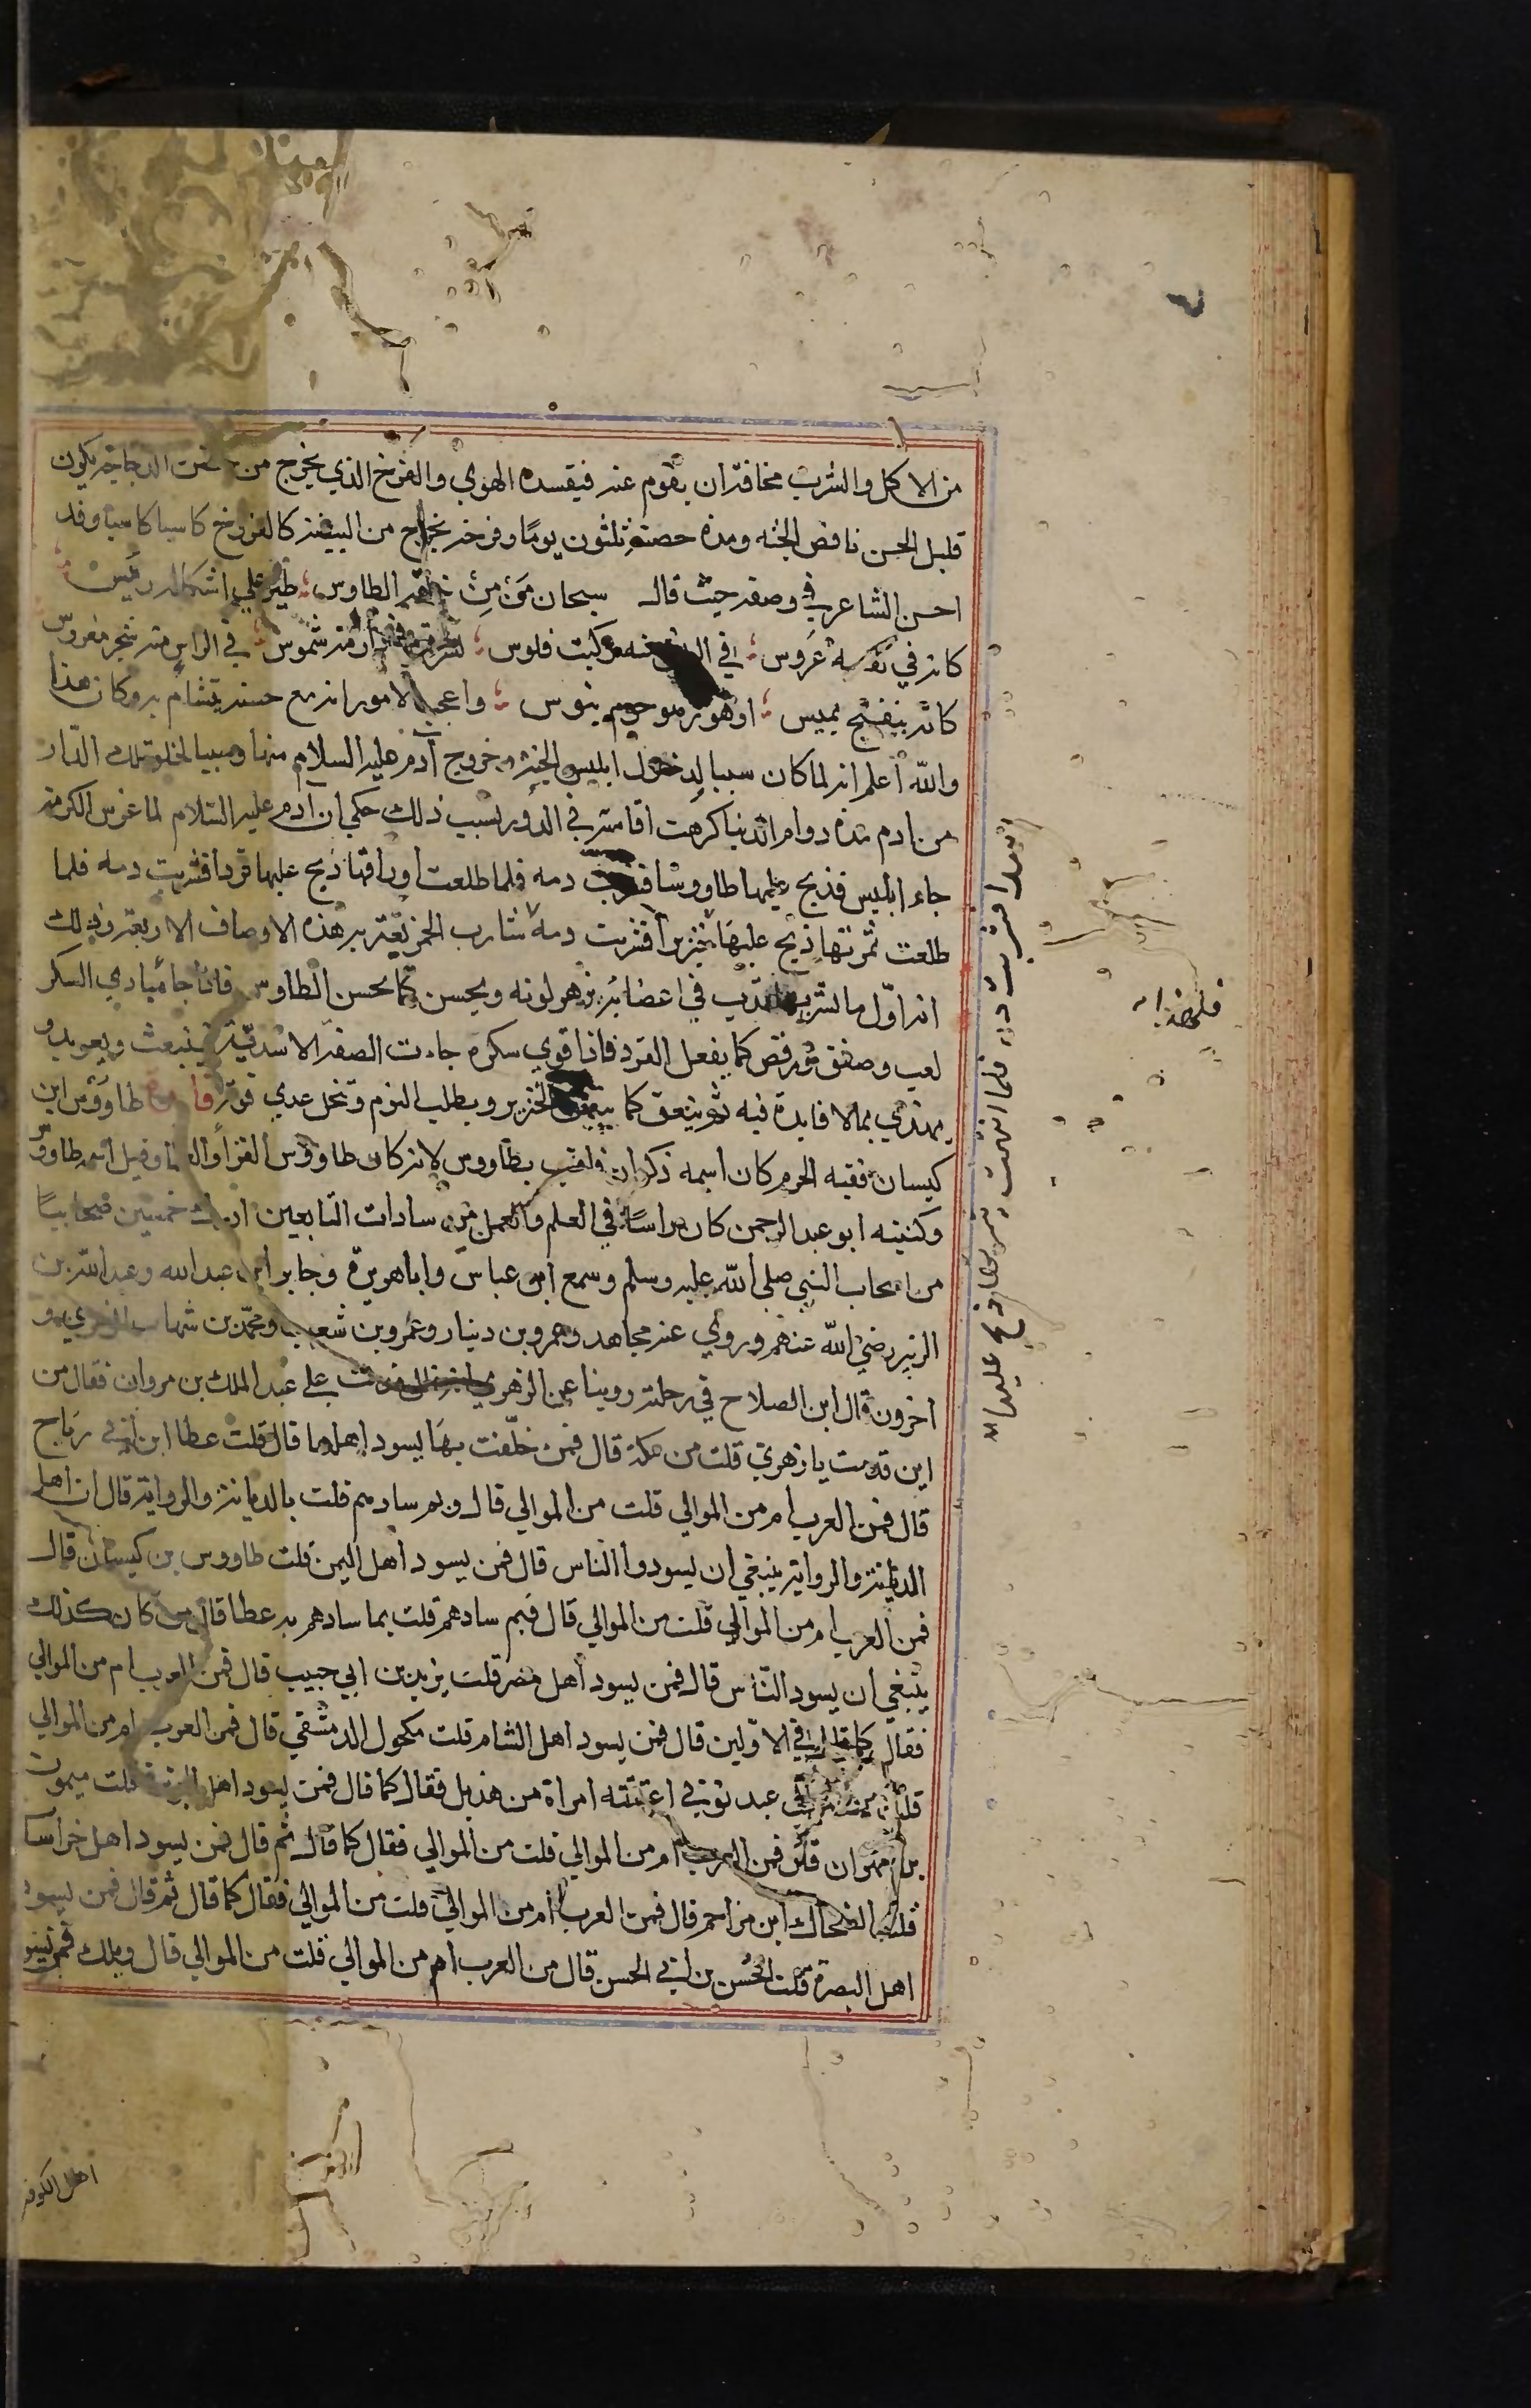 من الاكل والشرب مخافة ان يقوم عنه فيفسده الهوي والفرخ الذي يخرج من حضن الدجاجة يكون
قليل الحسن ناقص الجثه ومدة حضنه ثلثون يومًا وفرخه يخرج من البيضة كالفروخ كاسيا كاسبا وقد
احسن الشاعر في وصفه حيث قال سبحان مَن مِن خلقه الطاوس ؛ طير علي اشكاله رئيس ؛
كانه في نقوشه عروس ؛ في الريش منه ركبت فلوس ؛ تشرق في داراته شموس ؛ في الراس منه شجر مغروس
كانه بنفسج يميس ؛ او هو زهر حرم ينوس ؛ واعجب الامور انه مع حسنه يتشام به وكان هذا
والله أعلم انه لما كان سببا لدخول ابليس الجنة وخروج آدم عليه السلام منها وسببا لخلو تلك الدار
من ادم مدة دوام الدنيا كرهت اقامته في الدور بسبب ذلك حكي ان ادم عليه السلام لما غرس الكرمة
جاء ابليس فذبح عليها طاووسا فشربت دمه فلما طلعت اوراقها ذبح عليها قردا فشربت دمه فلما
طلعت ثمرتها ذبح عليها خنزيرا فشربت دمه شارب الخمر تعتريه هذه الاوصاف الاربعة وذلك
انه اوّل ما يشربها وتدب في اعضائه يزهو لونه ويحسن كما يحسن الطاوس فاذا جا مبادي السكر
لعب وصفق ورقص كما يفعل القرد فاذا قوي سكره جاءت الصفة الاسدية فينبعث ويعربد و
يهذي بمالا فايدة فيه ثم ينعق كما ينعق الخنزير ويطلب النوم وتنحل عري قوته طاووس ابن
كيسان فقيه الحرم كان اسمه ذكوان فلقب بطاووس لانه كان طاووس القرا والعلما وقيل اسمه طاووس
وكنيته ابو عبد الرحمن كان راسًا في العلم والعمل من سادات التابعين ادرك خمسين صحابيًا
من اصحاب النبي صلى الله عليه وسلم وسمع ابن عباس واباهريرة وجابر ابن عبد الله وعبد الله بن
الزبير رضي الله عنهم وروي عنه مجاهد وعمرو بن دينار وعمرو بن شعيب ومحمد بن شهاب الزهري و
اخرون قال ابن الصلاح في رحلته روينا عن الزهري انه قال قدمت علي عبد الملك بن مروان فقال من
اين قدمت يا زهري قلت من مكة قال فمن خلّفت بها يسود اهلها قال قلت عطا ابن ابي رباح
قال فمن العرب ام من الموالي قلت من الموالي قال وبم سادهم قلت بالديانة والرواية قال ان اهل
الديانة والرواية ينبغي ان يسودوا الناس قال فمن يسود اهل اليمن قلت طاووس بن كيسان قال
فمن العرب ام من الموالي قلت من الموالي قال فبم سادهم قلت بما سادهم به عطا قال من كان كذلك
ينبغي ان يسود الناس قال فمن يسود اهل مصر قلت يزيد بن ابي حبيب قال فمن العرب ام من الموالي
فقال كما قال في الاولين قال فمن يسود اهل الشام قلت مكحول الدمشقي قال فمن العرب ام من الموالي
قلت من الموالي عبد نوبي اعتقته امراة من هذيل فقال كما قال فمن يسود اهل الجزيرة قلت ميمون
بن مهران قال فمن العرب ام من الموالي قلت من الموالي فقال كما قال ثم قال فمن يسود اهل خراسا
قلت الضحاك ابن مزاحم قال فمن العرب ام من الموالي قلت من الموالي فقال كما قال ثم قال فمن يسود
اهل البصرة قلت الحسن بن ابي الحسن قال من العرب ام من الموالي قلت من الموالي قال ويلك فمن يسو
اهل الكوفه
اسدا فشربت دمه فلما انتهت ثمرتها ذبح عليها
فلهذا